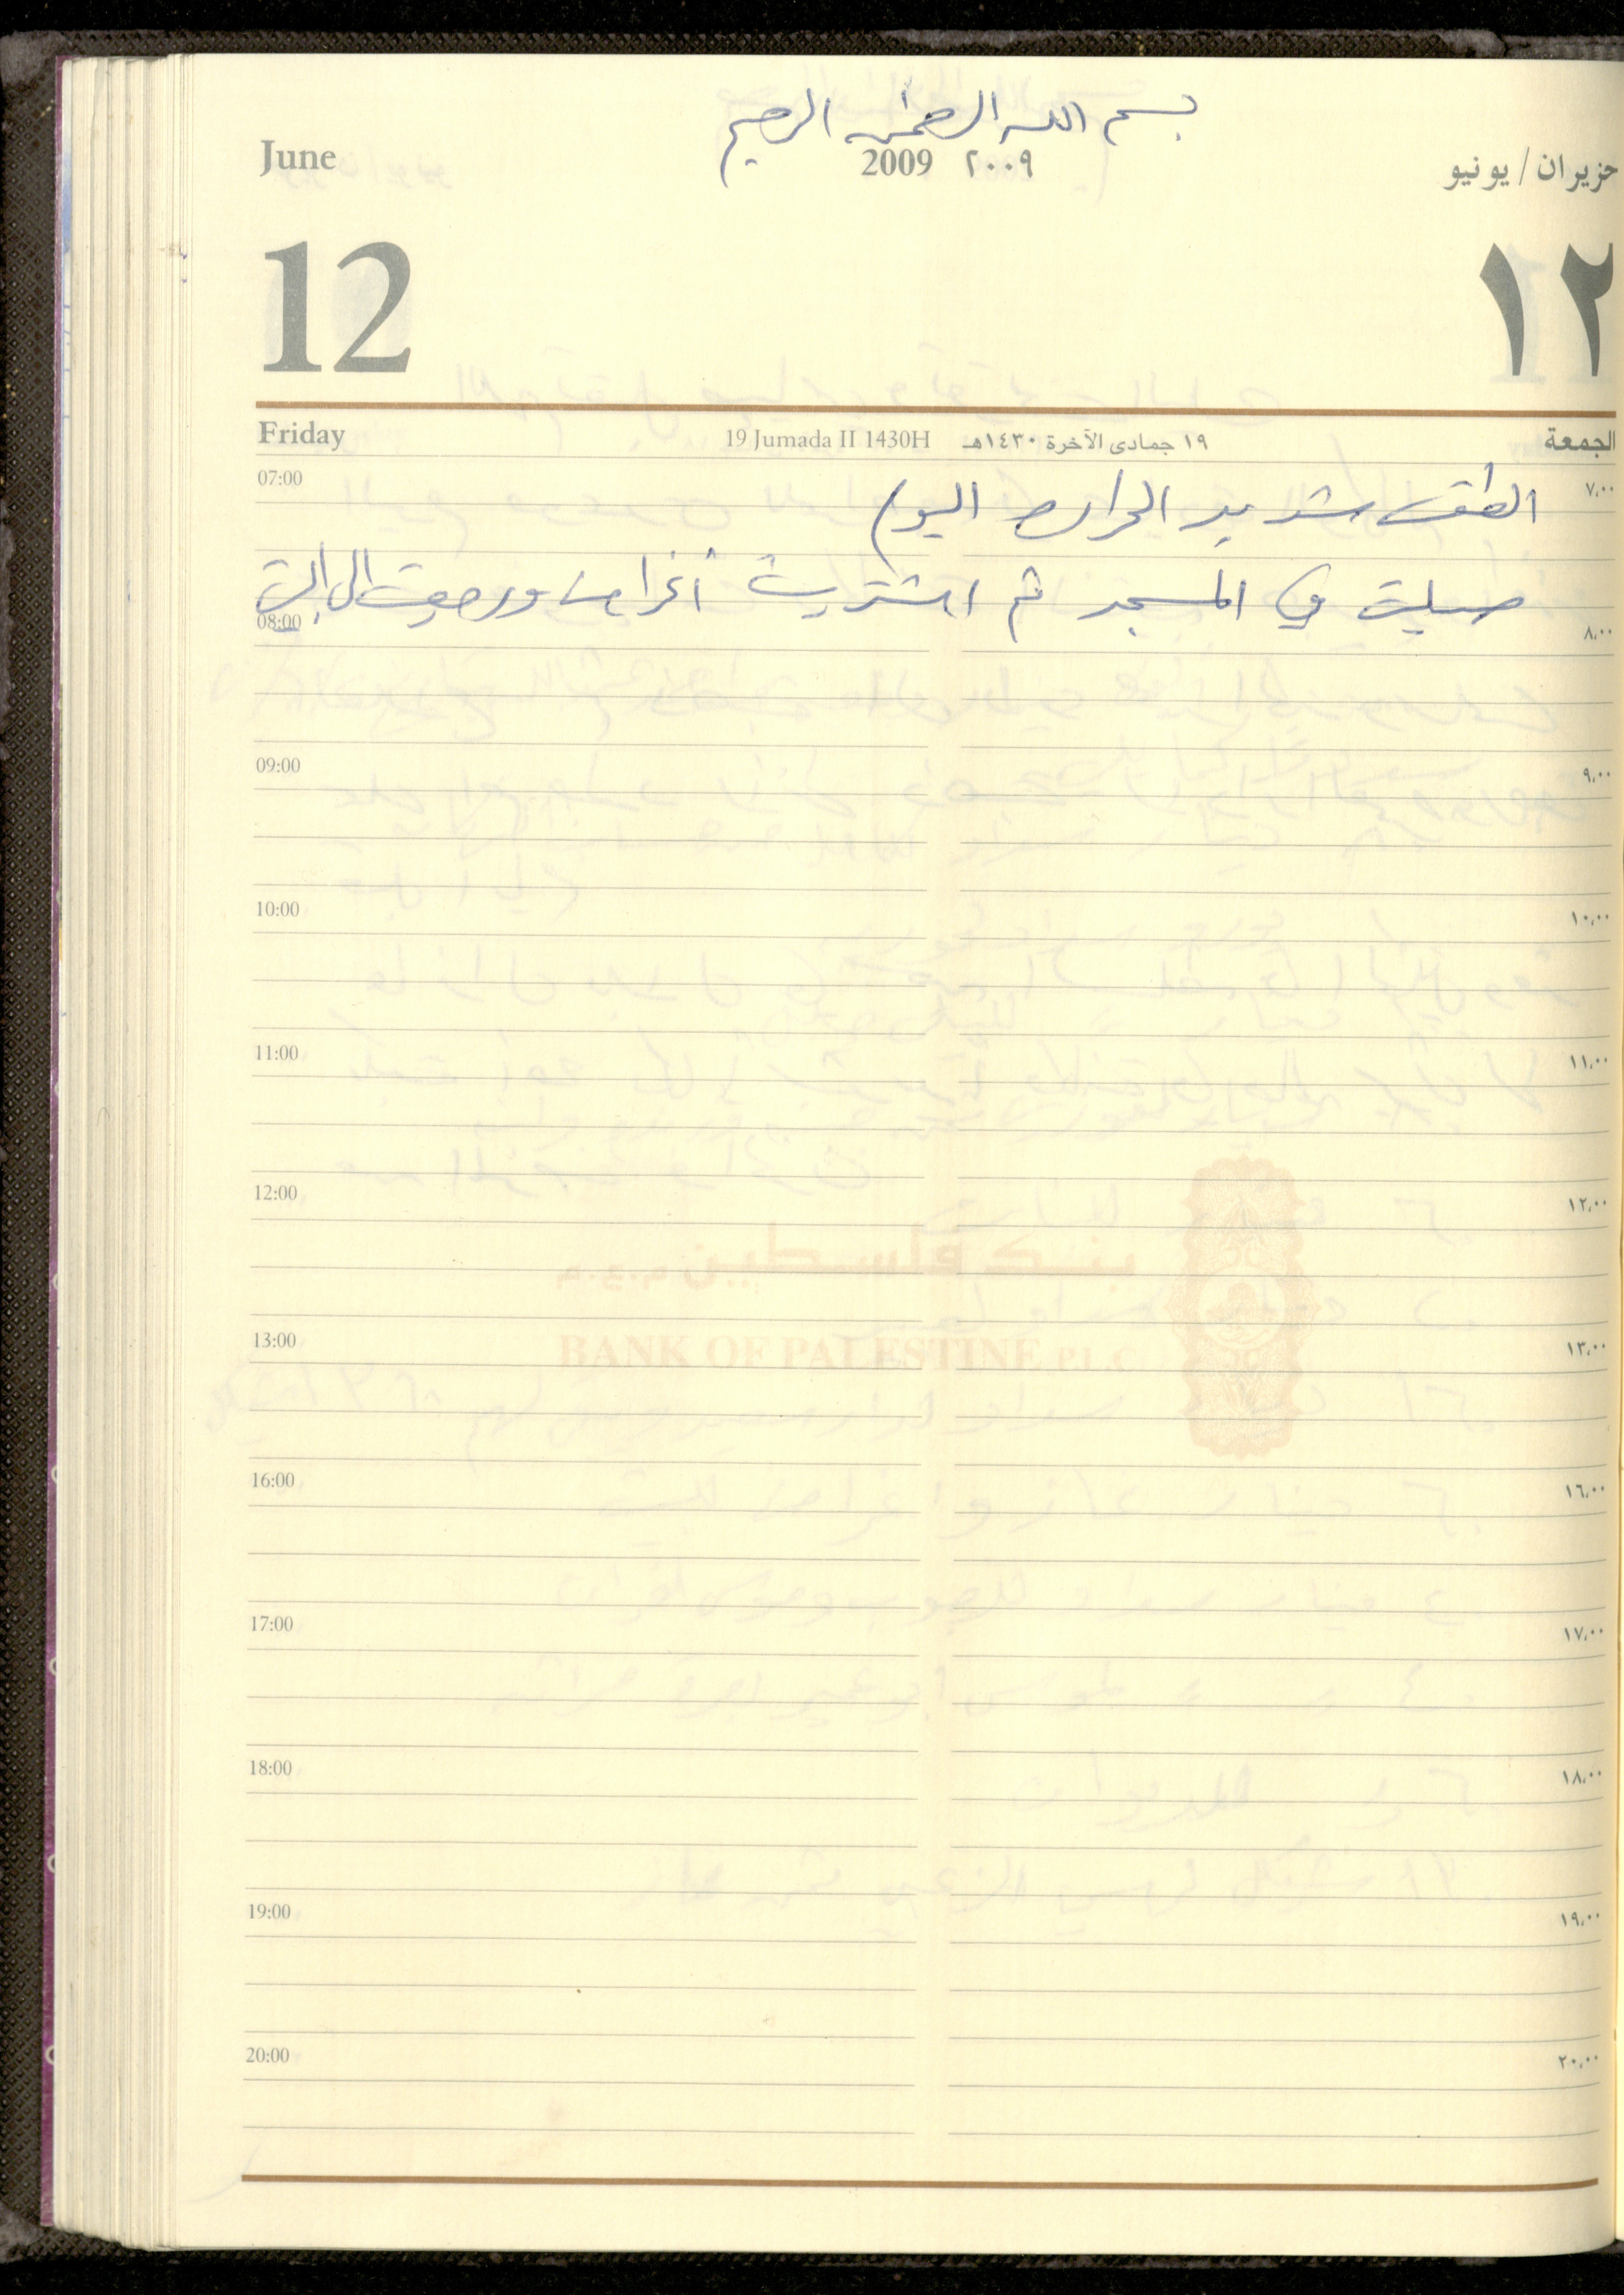 بسم الله الرحمن الرحيم
June 2009 ٢٠٠٩ حزيران / يونيو
12 ١٢
Friday 19 Jumada II 1430H ١٩ جمادى الآخرة ١٤٣٠هـ الجمعة
07:00 ٧,٠٠
الطقس شديد الحرارة اليوم
صليت في المسجد ثم اشتريت أغراض ورجعت الى البيت
08:00 ٨,٠٠
09:00 ٩,٠٠
10:00 ١٠,٠٠
11:00 ١١,٠٠
12:00 ١٢,٠٠
بنك فلسطين م.ع.م.
BANK OF PALESTINE P.L.C
13:00 ١٣,٠٠
16:00 ١٦,٠٠
17:00 ١٧,٠٠
18:00 ١٨,٠٠
19:00 ١٩,٠٠
20:00 ٢٠,٠٠